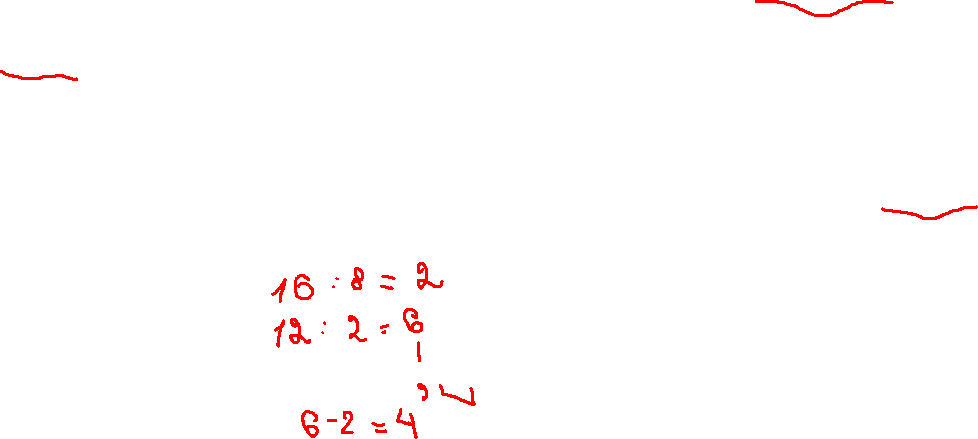 16 : 8 = 2
12 : 2 = 6
6 - 2 = 4